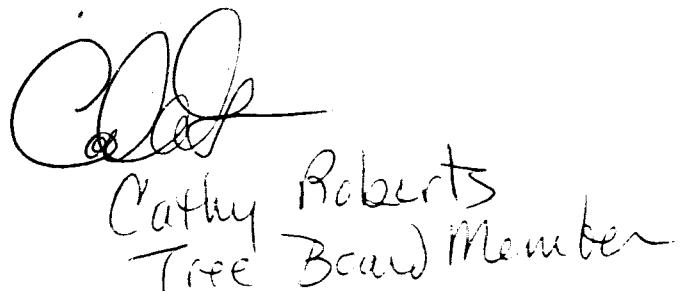 Cathy Roberts
Tree Board Member